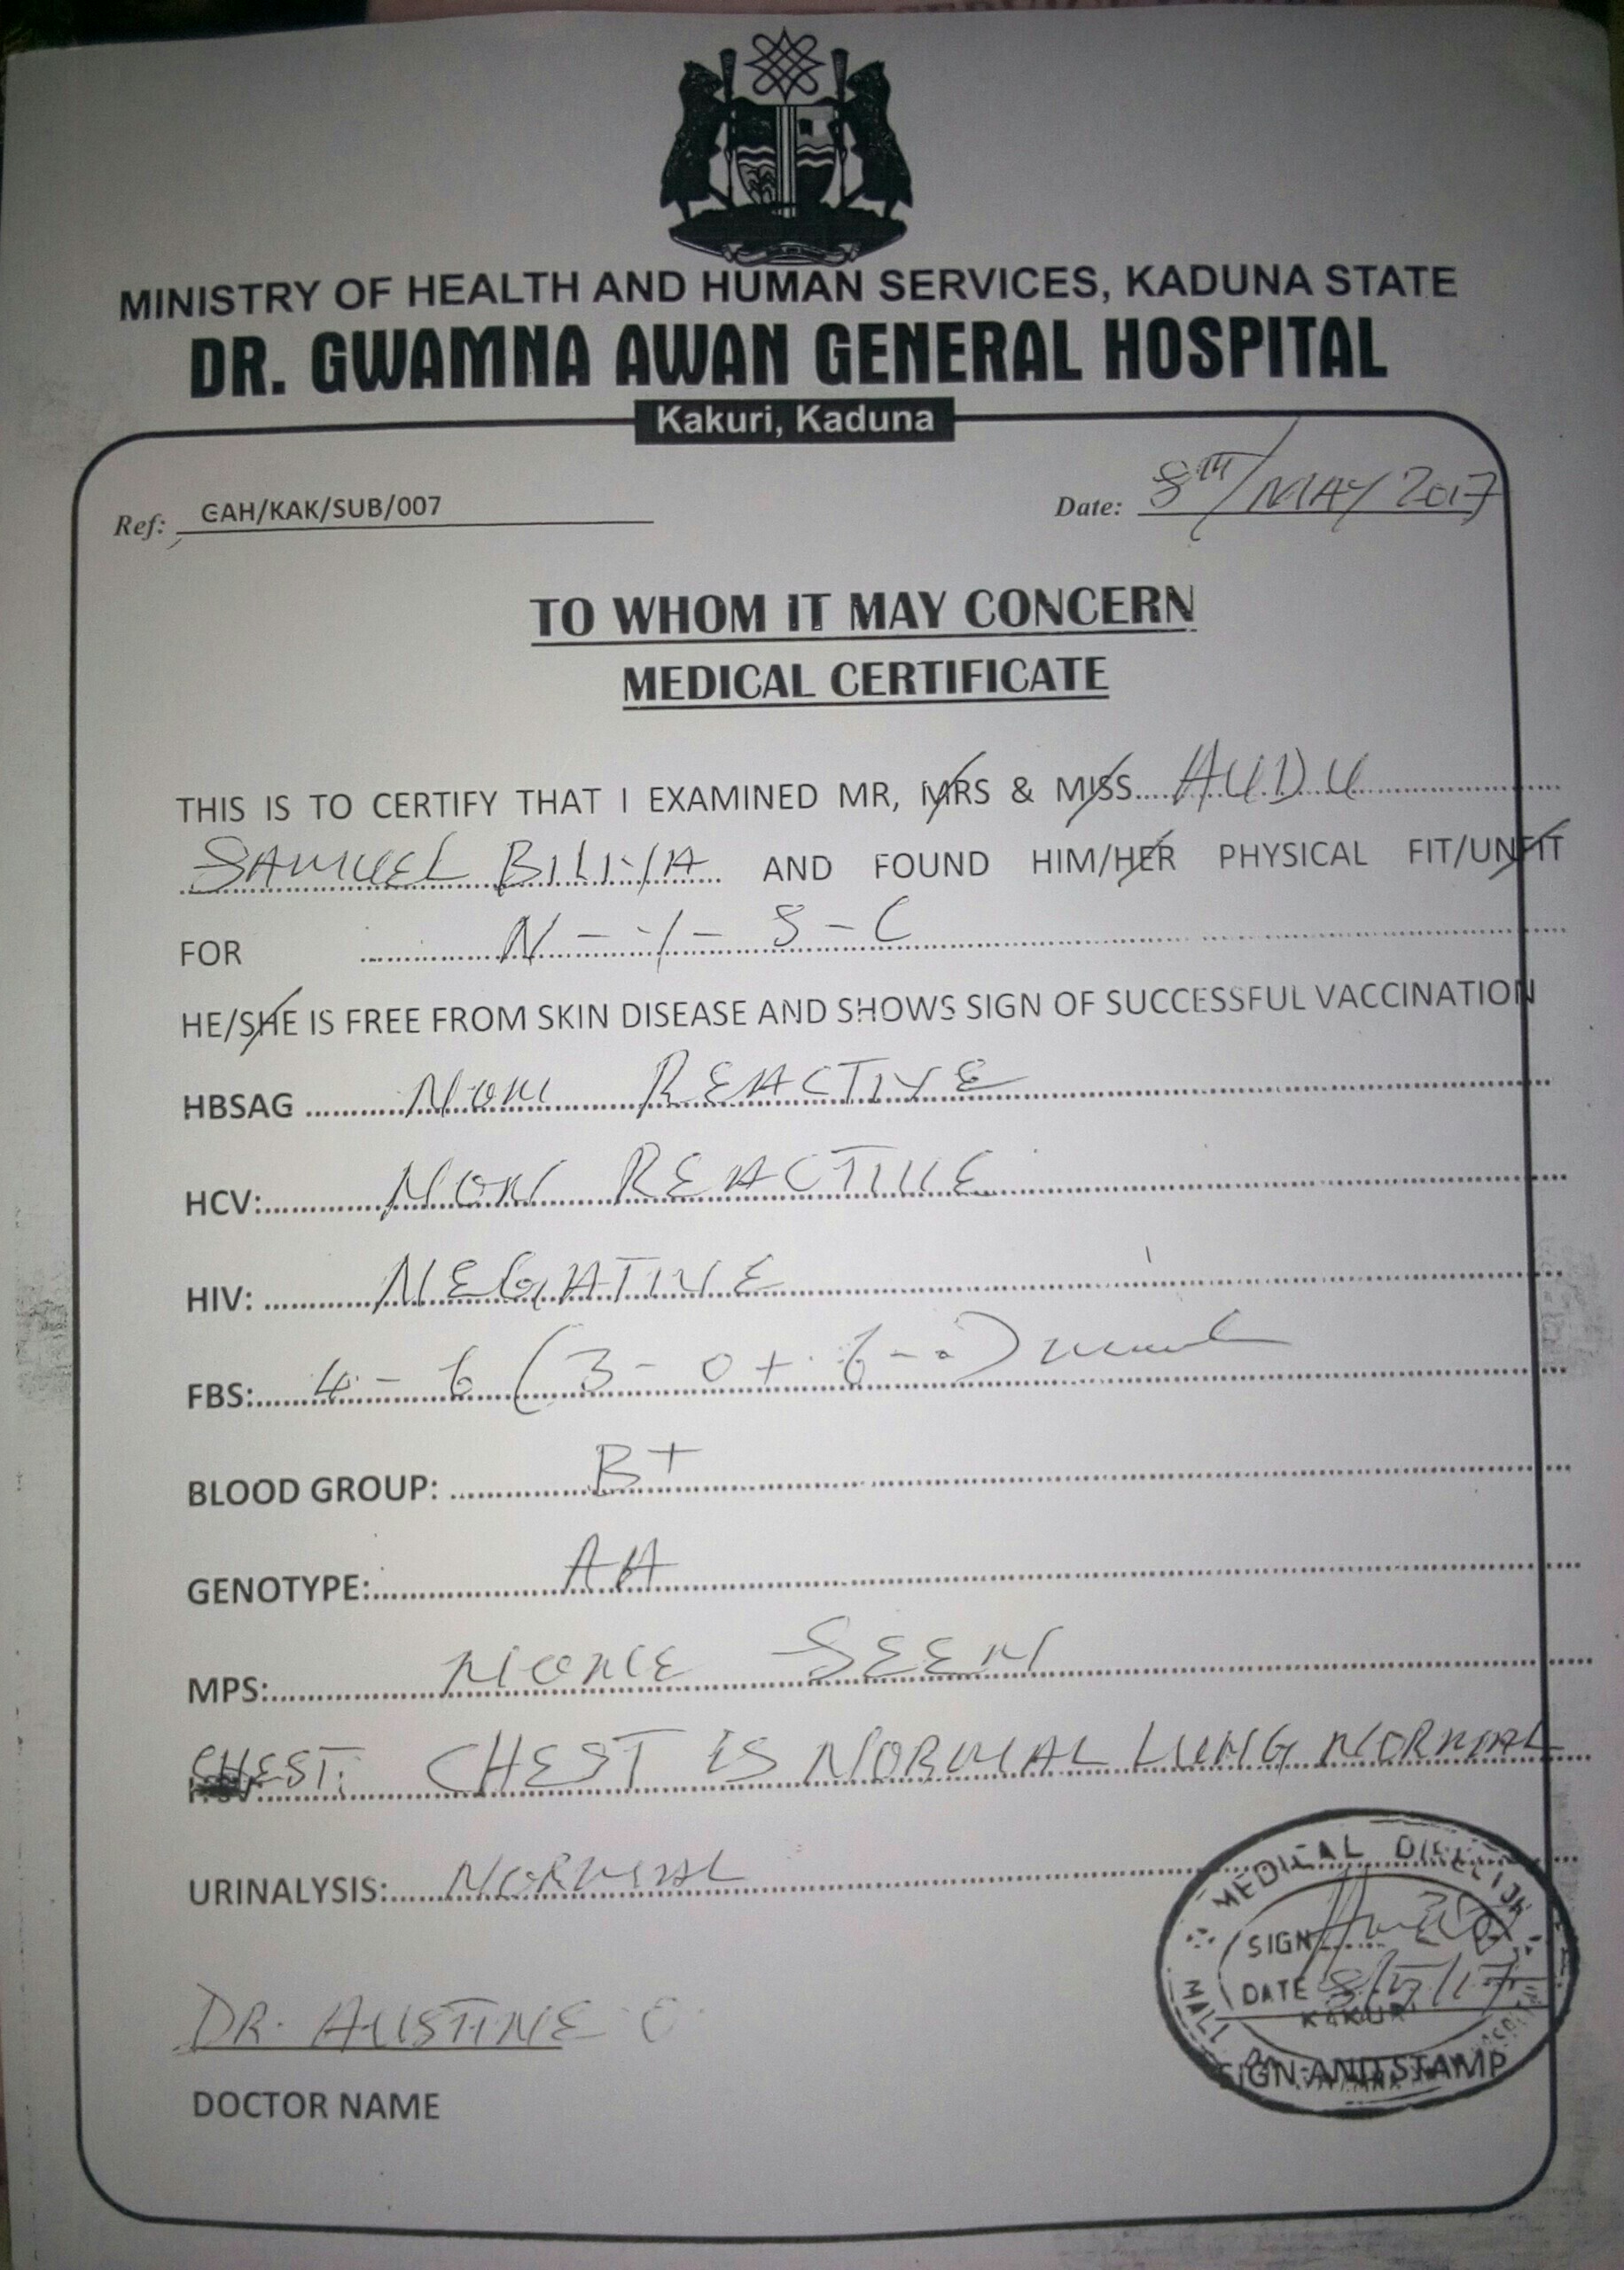 MINISTRY OF HEALTH AND HUMAN SERVICES, KADUNA STATE
DR. GWAMNA AWAN GENERAL HOSPITAL
Kakuri, Kaduna
Ref: GAH/KAK/SUB/007
Date: 8TH/MAY 2017
TO WHOM IT MAY CONCERN
MEDICAL CERTIFICATE
THIS IS TO CERTIFY THAT I EXAMINED MR, MRS & MISS AUDU
SAMUEL AND FOUND HIM/HER PHYSICAL FIT/UNFIT
FOR
HE/SHE IS FREE FROM SKIN DISEASE AND SHOWS SIGN OF SUCCESSFUL VACCINATION
HBSAG NON REACTIVE
HCV: NON REACTIVE
HIV: NEGATIVE
FBS: 4-6
BLOOD GROUP: B+
GENOTYPE: AA
MPS: NONE SEEN
CHEST: CHEST IS NORMAL LUNG NORMAL
URINALYSIS: NORMAL
MEDICAL
SIGN
DATE 8/5/17
KAKURI
SIGN AND STAMP
DR. AUSTINE
DOCTOR NAME